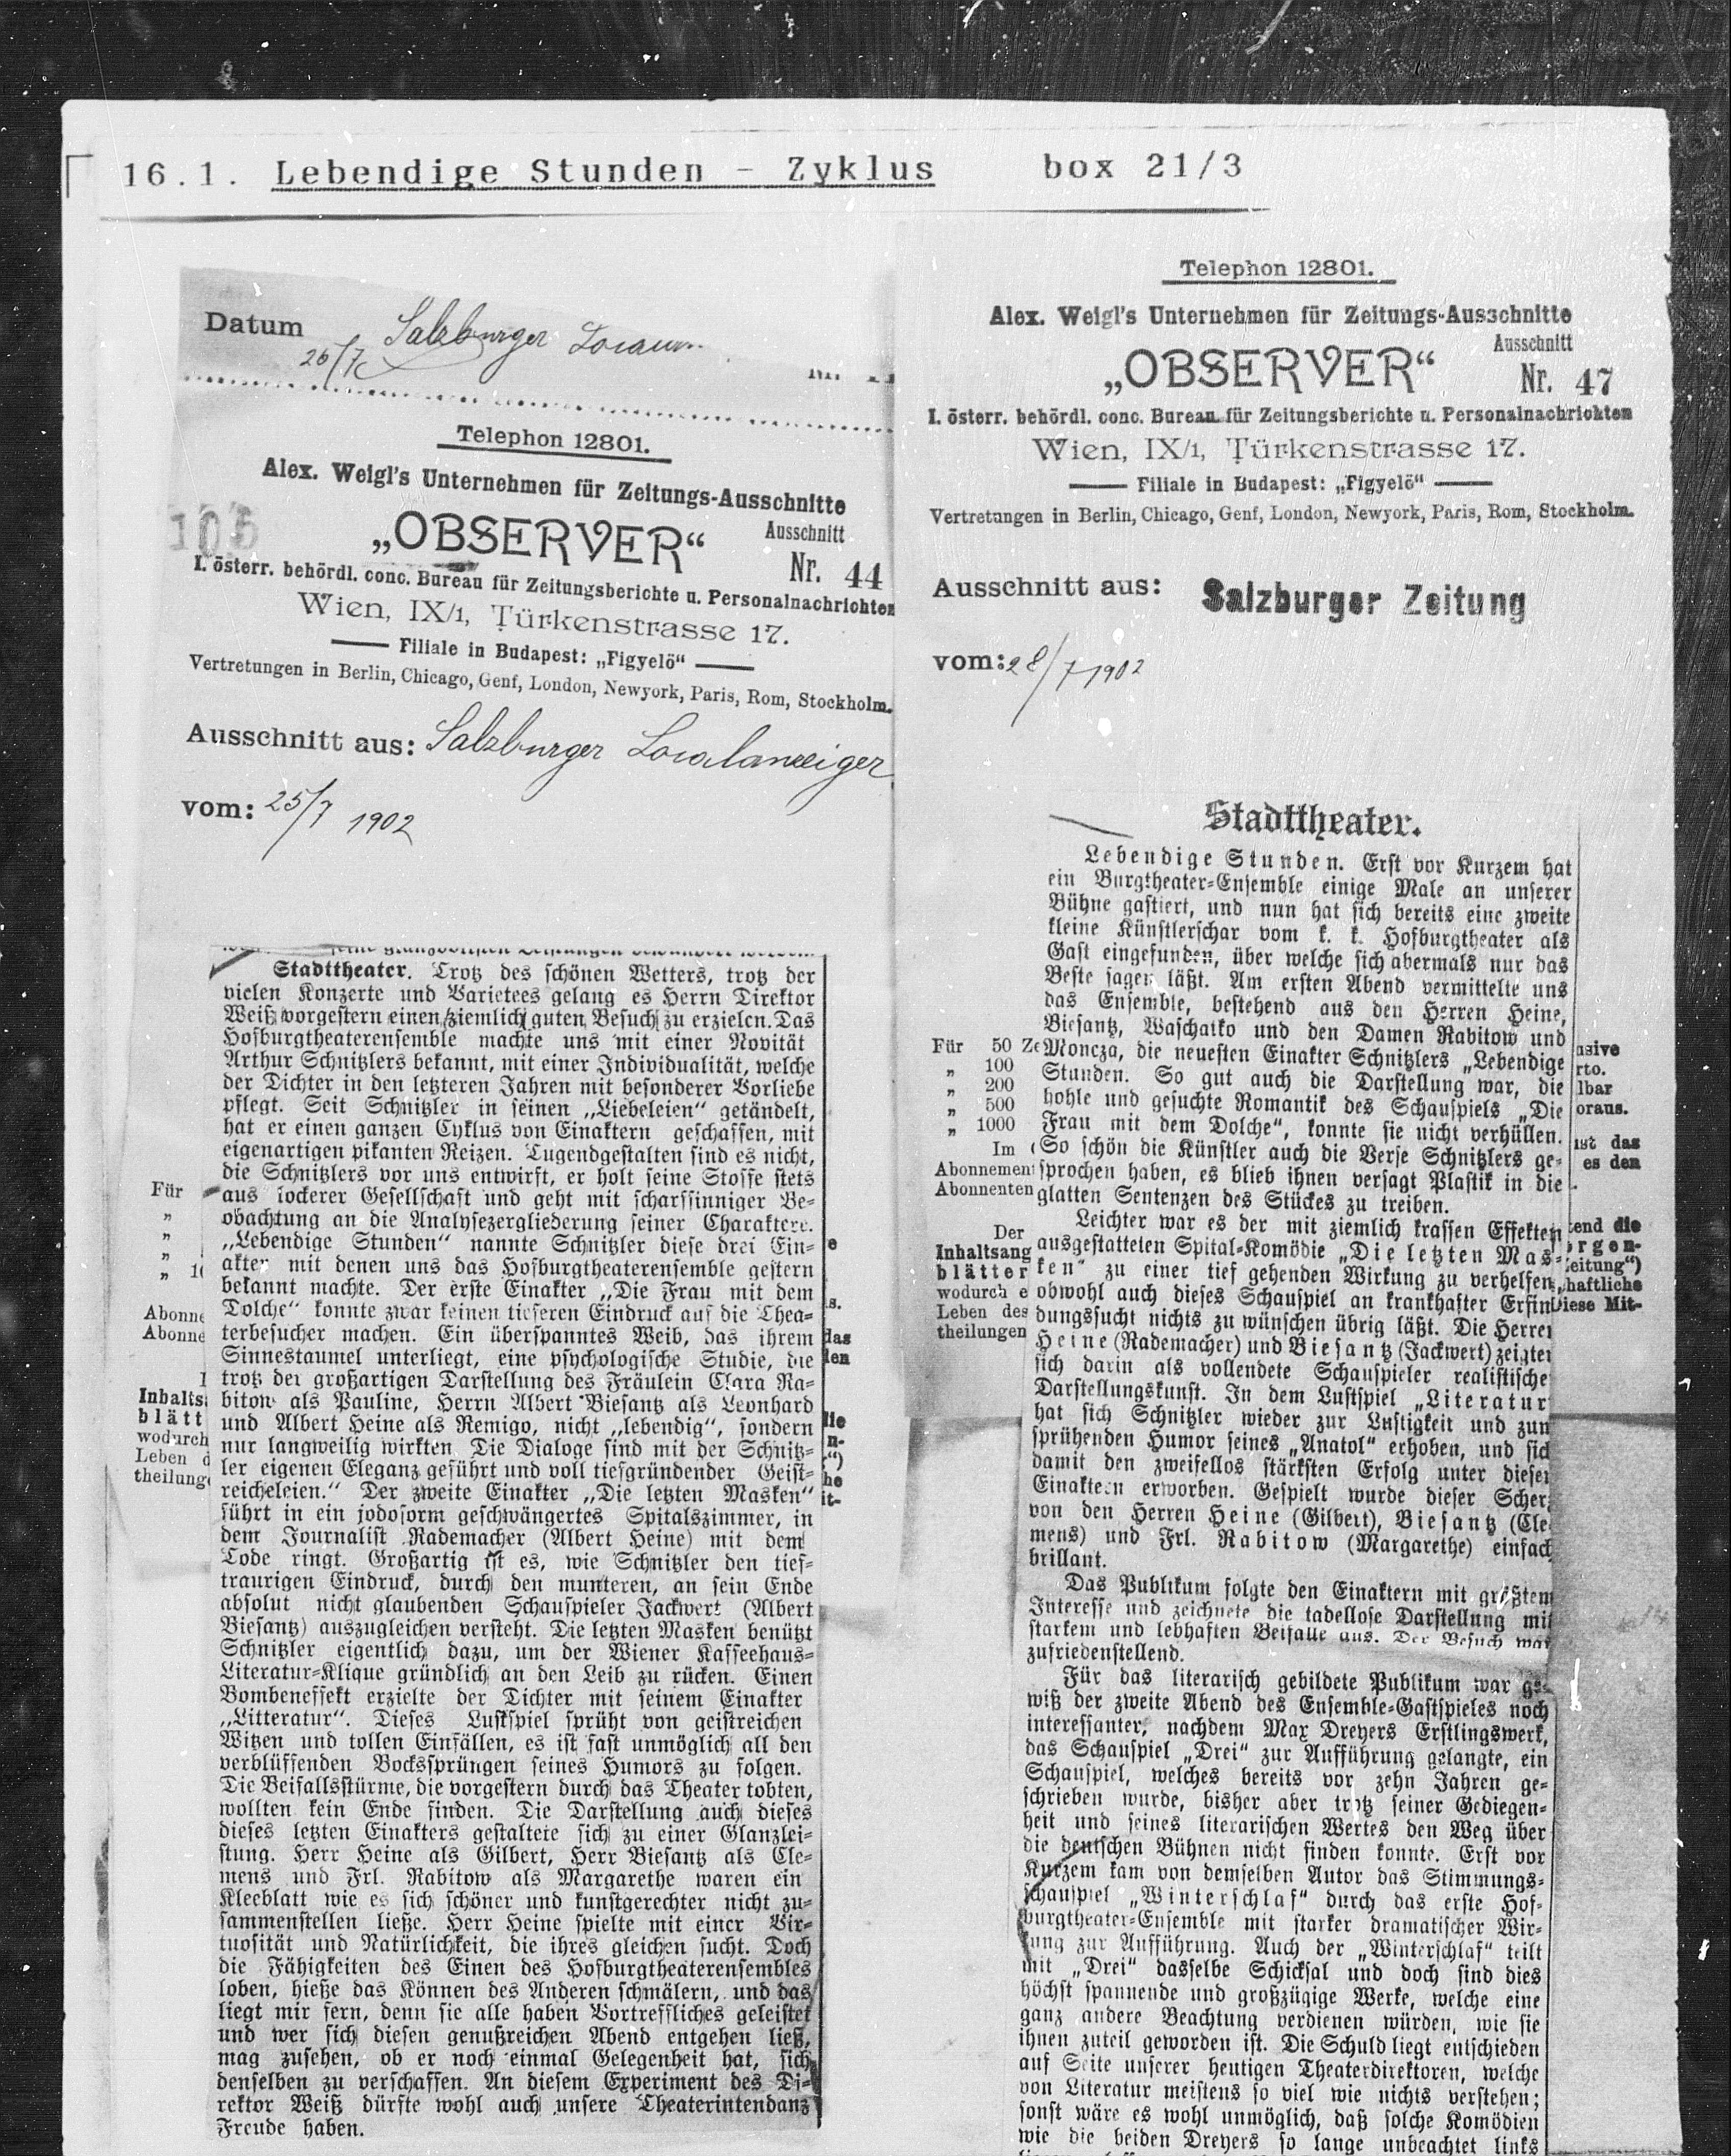 16.1. Lebendige Stunden - Zyklus box 21/3
Datum
25/7 Salzburger
Telephon 12801.
Alex. Weigl's Unternehmen für Zeitungs-Ausschnitte
105
„OBSERVER“
Ausschnitt
Nr. 44
I. österr. behördl. conc. Bureau für Zeitungsberichte u. Personalnachrichten
Wien, IX/1, Türkenstrasse 17.
Filiale in Budapest: „Figyelö“
Vertretungen in Berlin, Chicago, Genf, London, Newyork, Paris, Rom, Stockholm.
Ausschnitt aus: Salzburger Localanzeiger
vom: 25/7 1902
Stadttheater. Trotz des schönen Wetters, trotz der
vielen Konzerte und Varietees gelang es Herrn Direktor
Weiß vorgestern einen ziemlich guten Besuch zu erzielen. Das
Hofburgtheaterensemble machte uns mit einer Novität
Arthur Schnitzlers bekannt, mit einer Individualität, welche
der Dichter in den letzteren Jahren mit besonderer Vorliebe
pflegt. Seit Schnitzler in seinen „Liebeleien“ getändelt,
hat er einen ganzen Cyklus von Einaktern geschaffen, mit
eigenartigen pikanten Reizen. Tugendgestalten sind es nicht,
die Schnitzlers vor uns entwirft, er holt seine Stoffe stets
aus lockerer Gesellschaft und geht mit scharfsinniger Be-
obachtung an die Analysezergliederung seiner Charaktere.
„Lebendige Stunden“ nannte Schnitzler diese drei Ein-
akter mit denen uns das Hofburgtheaterensemble gestern
bekannt machte. Der erste Einakter „Die Frau mit dem
Dolche“ konnte zwar keinen tieferen Eindruck auf die Thea-
terbesucher machen. Ein überspanntes Weib, das ihrem
Sinnestaumel unterliegt, eine psychologische Studie, die
trotz der großartigen Darstellung des Fräulein Clara Ra-
bitow als Pauline, Herrn Albert Biesantz als Leonhard
und Albert Heine als Remigo, nicht „lebendig“, sondern
nur langweilig wirkten. Die Dialoge sind mit der Schnitz-
ler eigenen Eleganz geführt und voll tiefgründender Geist-
reicheleien.“ Der zweite Einakter „Die letzten Masken“
führt in ein jodoform geschwängertes Spitalszimmer, in
dem Journalist Rademacher (Albert Heine) mit dem
Tode ringt. Großartig ist es, wie Schnitzler den tief-
traurigen Eindruck, durch den munteren, an sein Ende
absolut nicht glaubenden Schauspieler Jackwert (Albert
Biesantz) auszugleichen versteht. Die letzten Masken benützt
Schnitzler eigentlich dazu, um der Wiener Kaffeehaus-
Literatur-Klique gründlich an den Leib zu rücken. Einen
Bombeneffekt erzielte der Dichter mit seinem Einakter
„Litteratur“. Dieses Lustspiel sprüht von geistreichen
Witzen und tollen Einfällen, es ist fast unmöglich all den
verblüffenden Bockssprüngen seines Humors zu folgen.
Die Beifallsstürme, die vorgestern durch das Theater tobten,
wollten kein Ende finden. Die Darstellung auch dieses
dieses letzten Einakters gestaltete sich zu einer Glanzlei-
stung. Herr Heine als Gilbert, Herr Biesantz als Cle-
mens und Frl. Rabitow als Margarethe waren ein
Kleeblatt wie es sich schöner und kunstgerechter nicht zu-
sammenstellen ließe. Herr Heine spielte mit einer Vir-
tuosität und Natürlichkeit, die ihres gleichen sucht. Doch
die Fähigkeiten des Einen des Hofburgtheaterensembles
loben, hieße das Können des Anderen schmälern, und das
liegt mir fern, denn sie alle haben Vortreffliches geleistet
und wer sich diesen genußreichen Abend entgehen ließ,
mag zusehen, ob er noch einmal Gelegenheit hat, sich
denselben zu verschaffen. An diesem Experiment des Di-
rektor Weiß dürfte wohl auch unsere Theaterintendanz
Freude haben.
Für
Abonne
Abonne
Inhalts
blätt
wodurch
Leben d
theilung
Telephon 12801.
Alex. Weigl's Unternehmen für Zeitungs-Ausschnitte
„OBSERVER“
Ausschnitt
Nr. 47
I. österr. behördl. conc. Bureau für Zeitungsberichte u. Personalnachrichten
Wien, IX/1, Türkenstrasse 17.
Filiale in Budapest: „Figyelö“
Vertretungen in Berlin, Chicago, Genf, London, Newyork, Paris, Rom, Stockholm.
Ausschnitt aus: Salzburger Zeitung
vom: 28/7 1902
Stadttheater.
Lebendige Stunden. Erst vor Kurzem hat
ein Burgtheater-Ensemble einige Male an unserer
Bühne gastiert, und nun hat sich bereits eine zweite
kleine Künstlerschar vom k. k. Hofburgtheater als
Gast eingefunden, über welche sich abermals nur das
Beste sagen läßt. Am ersten Abend vermittelte uns
das Ensemble, bestehend aus den Herren Heine,
Biesantz, Waschatko und den Damen Rabitow und
Moncza, die neuesten Einakter Schnitzlers „Lebendige
Stunden. So gut auch die Darstellung war, die
hohle und gesuchte Romantik des Schauspiels „Die
Frau mit dem Dolche“, konnte sie nicht verhüllen.
So schön die Künstler auch die Verse Schnitzlers ge-
sprochen haben, es blieb ihnen versagt Plastik in die
glatten Sentenzen des Stückes zu treiben.
Leichter war es der mit ziemlich krassen Effekten
ausgestatteten Spital-Komödie „Die letzten Mas-
ken“ zu einer tief gehenden Wirkung zu verhelfen,
obwohl auch dieses Schauspiel an krankhafter Erfin
dungssucht nichts zu wünschen übrig läßt. Die Herren
Heine (Rademacher) und Biesantz (Jackwert) zeigten
sich darin als vollendete Schauspieler realistische
Darstellungskunst. In dem Lustspiel „Literatur
hat sich Schnitzler wieder zur Lustigkeit und zum
sprühenden Humor seines „Anatol“ erhoben, und sich
damit den zweifellos stärksten Erfolg unter diesen
Einaktern erworben. Gespielt wurde dieser Scherz
von den Herren Heine (Gilbert), Biesantz (Cle
mens) und Frl. Rabitow (Margarethe) einfach
brillant.
Das Publikum folgte den Einaktern mit größtem
Interesse und zeichnete die tadellose Darstellung mit
starkem und lebhaften Beifalle aus. Der Besuch war
zufriedenstellend.
Für das literarisch gebildete Publikum war ge-
wiß der zweite Abend des Ensemble-Gastspieles noch
interessanter, nachdem Max Dreyers Erstlingswerk,
das Schauspiel „Drei“ zur Aufführung gelangte, ein
Schauspiel, welches bereits vor zehn Jahren ge-
schrieben wurde, bisher aber trotz seiner Gediegen-
heit und seines literarischen Wertes den Weg über
die deutschen Bühnen nicht finden konnte. Erst vor
Kurzem kam von demselben Autor das Stimmungs-
schauspiel „Winterschlaf“ durch das erste Hof-
burgtheater-Ensemble mit starker dramatischer Wir-
kung zur Aufführung. Auch der „Winterschlaf“ teilt
mit „Drei“ dasselbe Schicksal und doch sind dies
höchst spannende und großzügige Werke, welche eine
ganz andere Beachtung verdienen würden, wie sie
ihnen zuteil geworden ist. Die Schuld liegt entschieden
auf Seite unserer heutigen Theaterdirektoren, welche
von Literatur meistens so viel wie nichts verstehen;
sonst wäre es wohl unmöglich, daß solche Komödien
wie die beiden Dreyers so lange unbeachtet links
Für 50 Ze
„ 100
„ 200
„ 500
„ 1000
Im
Abonnement
Abonnenten
Der
Inhaltsang
blätter
wodurch e
Leben des
theilungen
usive
rto.
lbar
oraus.
ist das
es den
tend die
orgen-
Zeitung“)
haftliche
Diese Mit-